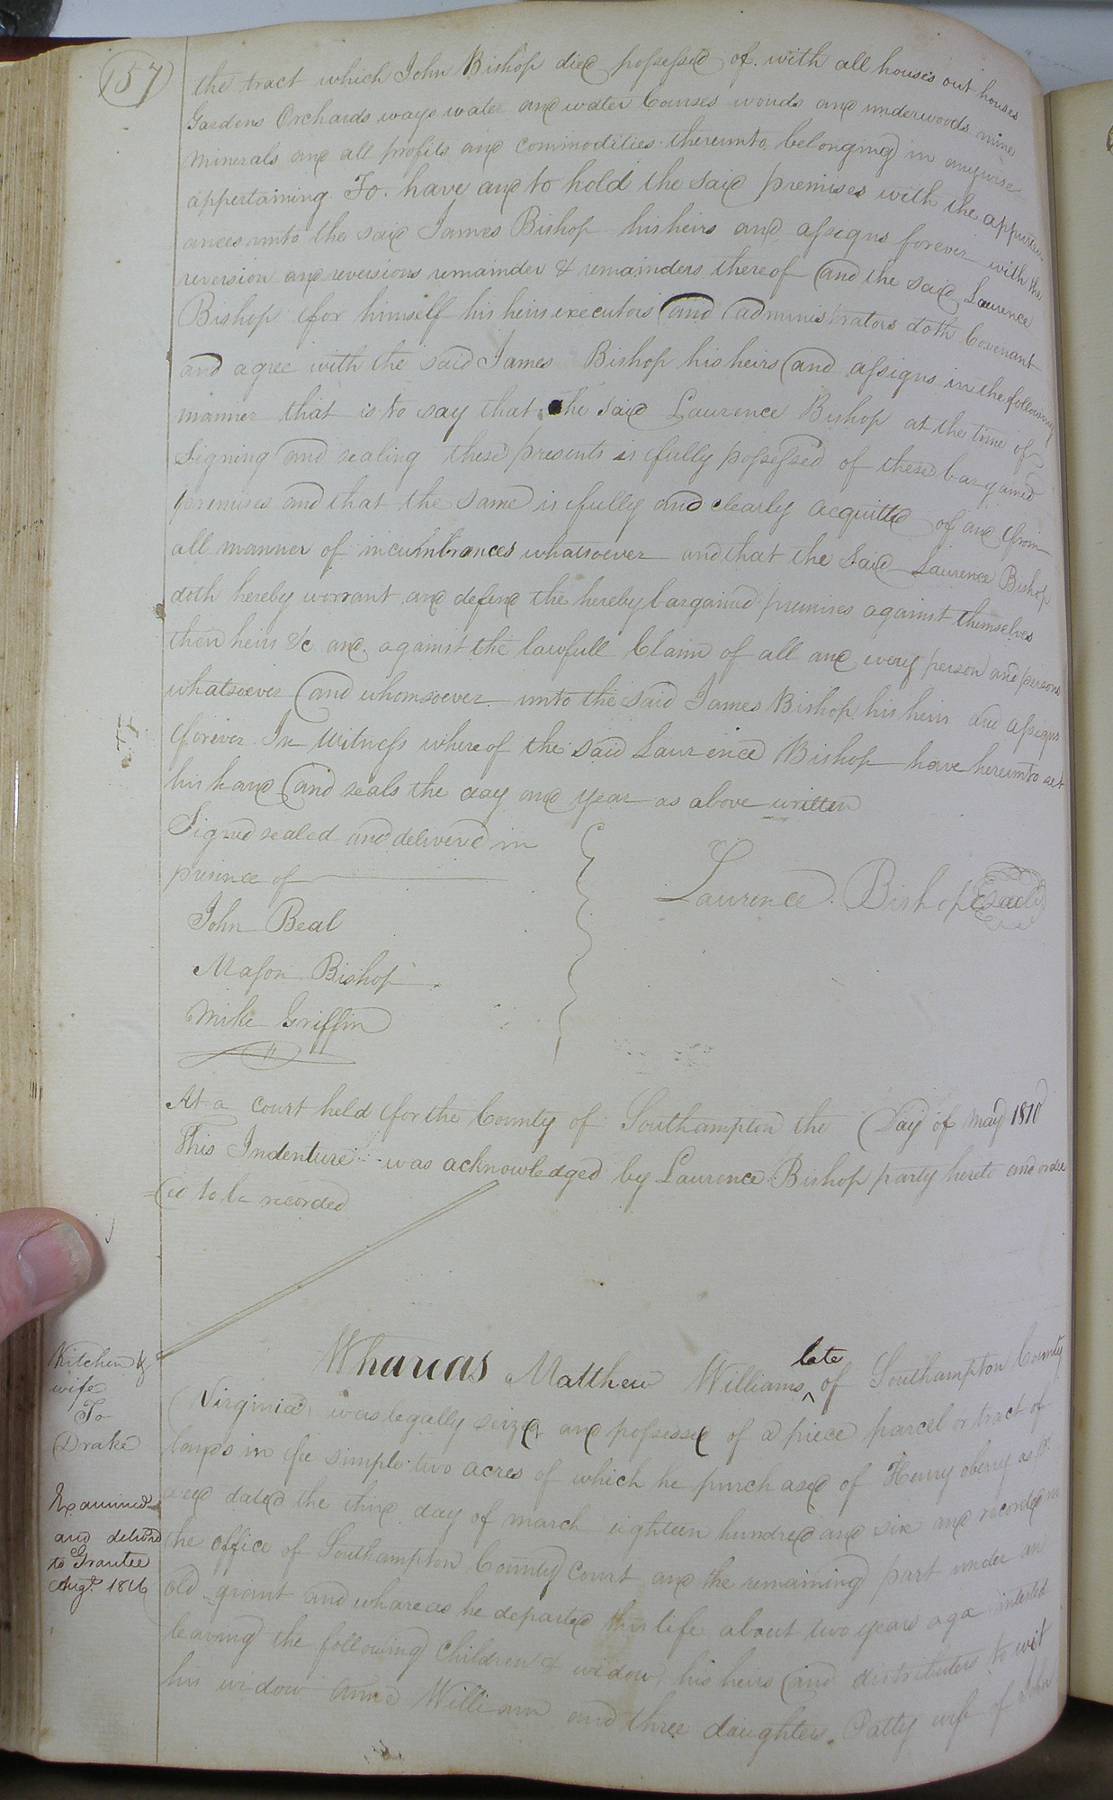 157
the tract which John Bishop died possessed of with all houses out houses
Gardens Orchards ways water and water Courses woods and underwoods mine
Minerals and all profits and commodities thereunto belonging in anywise
appertaining To have and to hold the said premises with the appurten
ances unto the said James Bishop his heirs and assigns forever with the
reversion and reversions remainder & remainders thereof and the said Laurence
Bishop for himself his heirs executors and administrators doth Covenant
and agree with the said James Bishop his heirs and assigns in the following
manner that is to say that the said Laurence Bishop at the time of
Signing and sealing these presents is fully possessed of these bargained
premises and that the same is fully and clearly acquitted of and from
all manner of incumbrances whatsoever and that the said Laurence Bishop
doth hereby worrant and defend the hereby bargained premises against themselves
their heirs &c and against the lawfull Claim of all and every person and persons
whatsoever and whomsoever unto the said James Bishop his heirs and assigns
forever In Witness whereof the said Laurence Bishop have hereunto set
his hand and seals the day and year as above written
Signed sealed and delivered in
presence of
Laurence Bishop Seal
John Beal
Mason Bishop
Mike Griffin
At a court held for the County of Southampton the Day of May 1810
This Indenture was acknowledged by Laurence Bishop party hereto and order
ed to be recorded
Kitchen &
wife
To
Drake
Examined
and delivd
to Grantee
Augt. 1816
Whareas Matthew Williams late of Southampton County
Virginia was legally seized and possessed of a piece parcel or tract of
lands in fee simple two acres of which he purchased of Henry obery as
deed dated the third day of march eighteen hundred and six and recorded in
the office of Southampton County Court and the remaining part under an
old grant and whareas he departed this life about two years ago intestid
leaving the following Children & widow his heirs and distributees to wit
his widow Anne William and three daughters, Patty wife of John